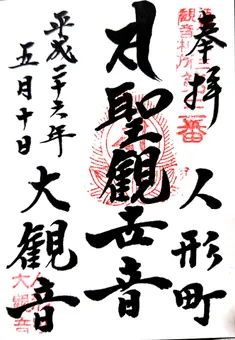 奉拝
人形町
観音札所
三番
聖観世音
大観音
大観音
平成二十六年
五月十日